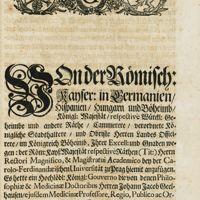 VOn der Römisch:
Kayser: in Germanien/
Hispanien/ Hungarn und Böheimb/
Königl: Majestät/ respectivè Würckl: Ge-
heimbe und andere Räthe/ Cammerere/ verordnete Kö-
nigliche Stadthaltere/ und Obriste Herren Landes Offici-
rere/ im Königreich Böheimb. Ihrer Excell: und Gnaden we-
gen: der Röm: Kays: Majestät respectivè Räthen/ (Tit:) Herren
Rectori Magnifico, & Magistratui Academico bey der Ca-
rolo-Ferdinandeischen Universität zu Prag hiemit anzufügen.
Es hette ein Hochlöbl: Königl: Gouverno die bey denen Philo-
sophiæ & Medicinæ Doctoribus Herren Johann Jacob Geel-
hausen/ ejusdem Medicinæ Professore, Regio, Publico ac Or-